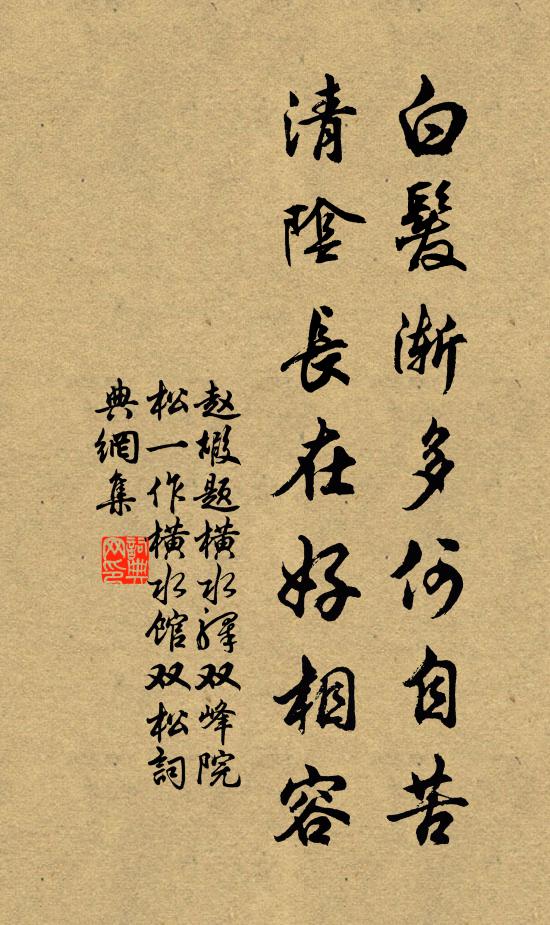 白髮漸多何自苦
清陰長在好相容
赵嘏题横水驿双峰院
松一作横水馆双松詞
典網集
詞典網印